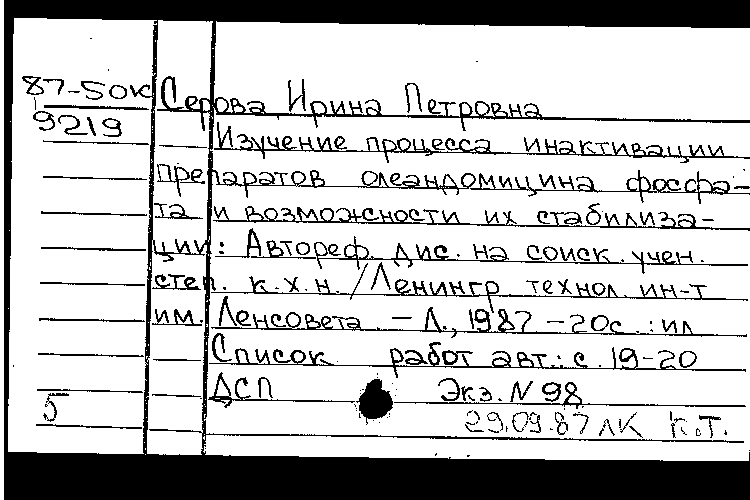 87-5ок Серова, Ирина Петровна
9219 Изучение процесса инактивации
препаратов олеандомицина фосфа-
та и возможности их стабилиза-
ции: Автореф. дис. на соиск. учен.
степ. к.х.н. / Ленингр. технол. ин-т
им. Ленсовета. - Л., 1987 - 20с. : ил
Список работ авт.: с. 19-20
ДСП Экз. N 98
5 29.09.87 ЛК К.Т.